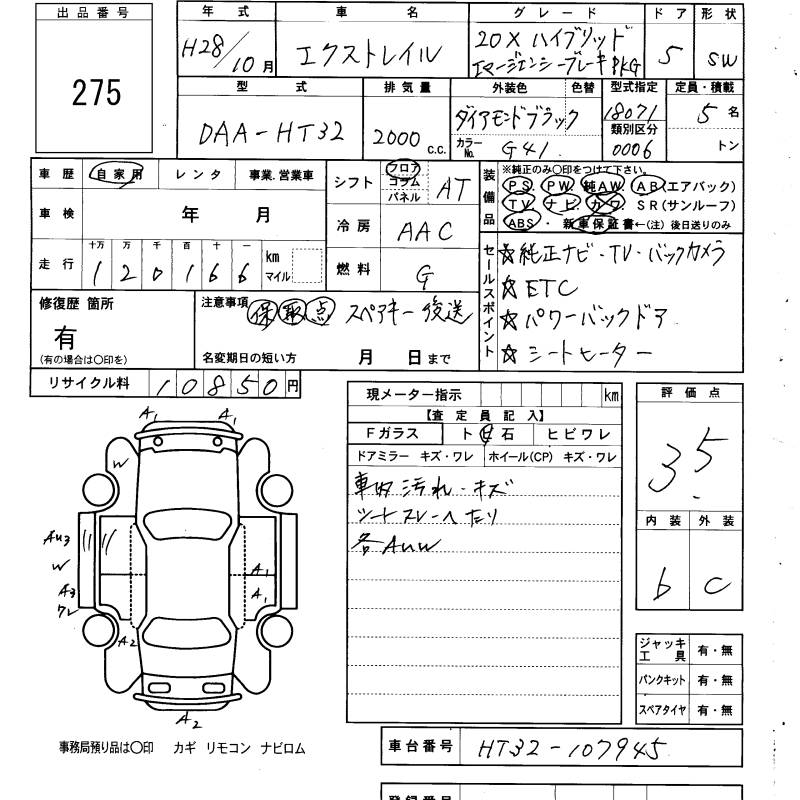 出品番号
275
年式 車名 グレード ドア 形状
H28/10月 エクストレイル 20X ハイブリッド エマージェンシーブレーキPKG 5 SW
型式 排気量 外装色 色替 型式指定 定員・積載
DAA-HT32 2000 C.C. ダイアモンドブラック 18071 5名
カラーNo. G41 類別区分 0006 トン
車歴 自家用 レンタ 事業.営業車
シフト フロア コラム パネル AT
車検 年 月
冷房 AAC
走行 十万 万 千 百 十 一
120166 km マイル
燃料 G
装備品
※純正のみ○印をつけて下さい。
PS. PW. 純AW. AB(エアバック)
TV. ナビ. カワ. SR(サンルーフ)
ABS・新車保証書←(注)後日送りのみ
セールスポイント
☆純正ナビ・TV・バックカメラ
☆ETC
☆パワーバックドア
☆シートヒーター
修復歴 箇所
有
(有の場合は○印を)
注意事項 保 取 点 スペアキー後送
名変期日の短い方 月 日まで
リサイクル料 10850円
現メーター指示 km
【査定員記入】
Fガラス ト 石 ヒビワレ
ドアミラー キズ・ワレ ホイール(CP) キズ・ワレ
車内汚れ・キズ
シートスレ・ヘたり
各AUW
評価点
3.5
内装 外装
b C
A1 A1
W
AU3
W
A3
ワレ
A1
A1
A2
A2
ジャッキ工具 有・無
パンクキット 有・無
スペアタイヤ 有・無
事務局預り品は○印 カギ リモコン ナビロム
車台番号 HT32-107945
登録番号